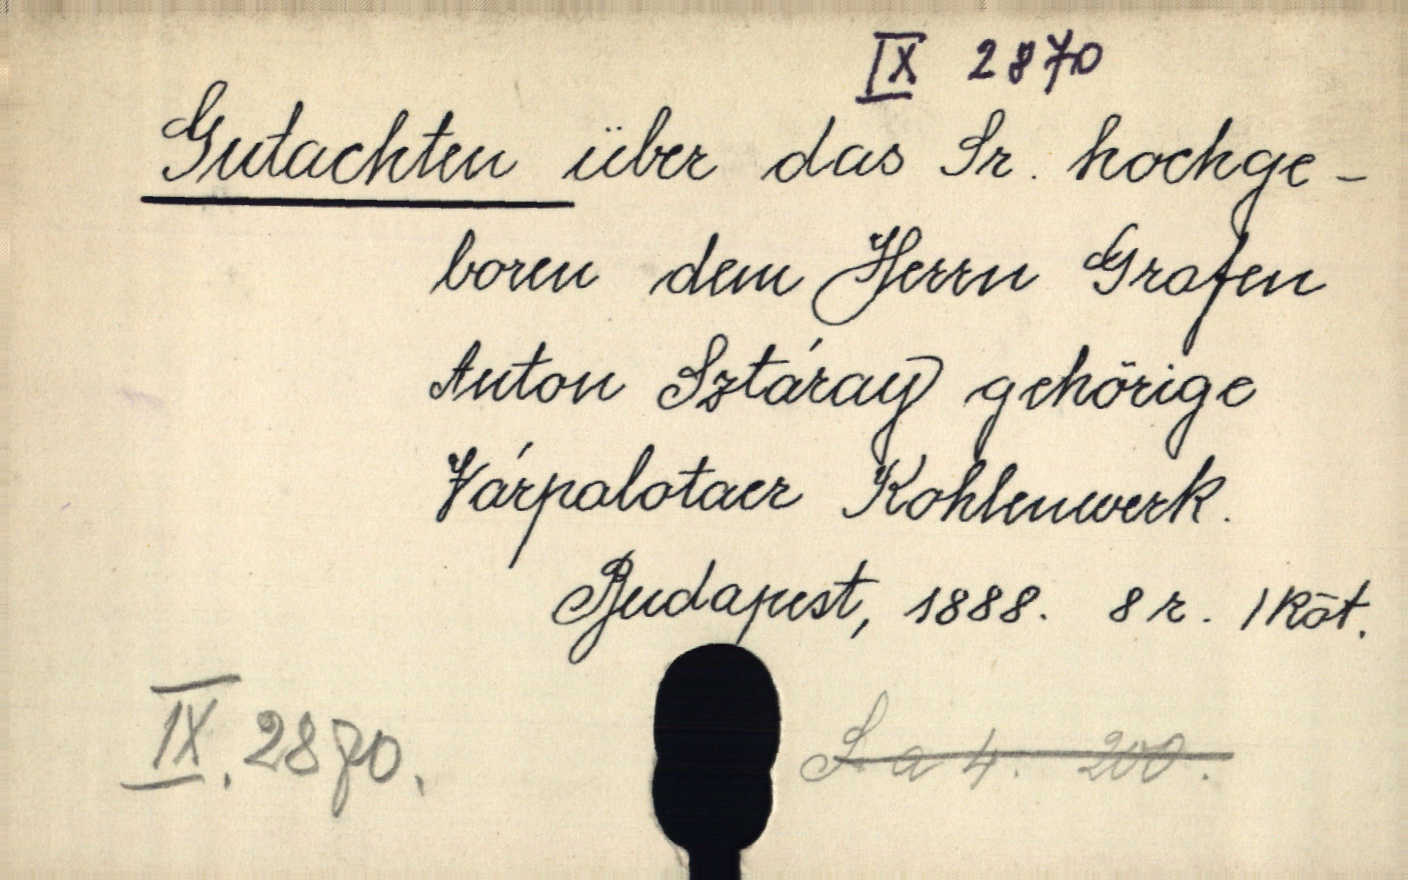 IX 2870
Gutachten über das Sr. hochge-
boren dem Herrn Grafen
Anton Sztáray gehörige
Várpalotaer Kohlenwerk.
Budapest, 1888. 8 r. 1 köt.
IX. 2870.
S a 4. 200.